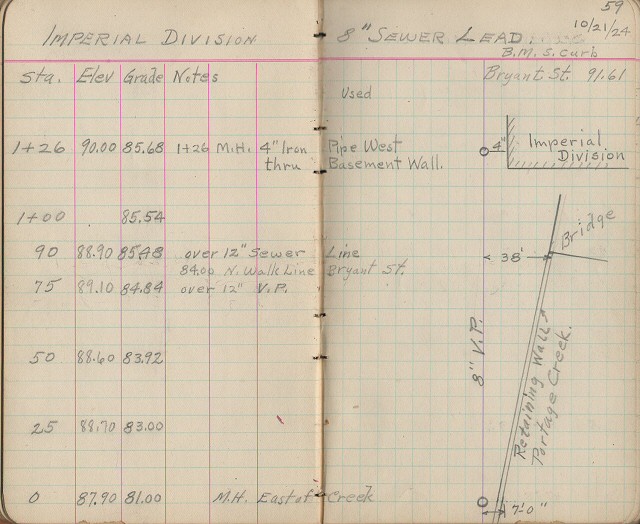 59
IMPERIAL DIVISION 8" SEWER LEAD 10/21/24
B.M. S. Curb
Sta. Elev Grade Notes Bryant St. 91.61
Used
1+26 90.00 85.68 1+26 M.H. 4" Iron Pipe West
thru Basement Wall.
4" Imperial
Division
1+00 85.54
Bridge
90 88.90 85.48 over 12" Sewer Line
84.00 N. Walk Line Bryant St.
38'
75 89.10 84.84 over 12" V.P.
8" V.P.
Retaining Wall
Portage Creek.
50 88.60 83.92
25 88.70 83.00
0 87.90 81.00 M.H. East of Creek
7'-0"